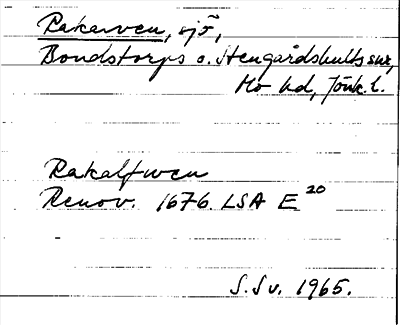 Rakarven, sjö,
Bondstorps o. Stengårdshults snr,
Mo hd, Jönk. l.
Rakalfwen
Renov. 1676 LSA E 20
S. Sv. 1965.